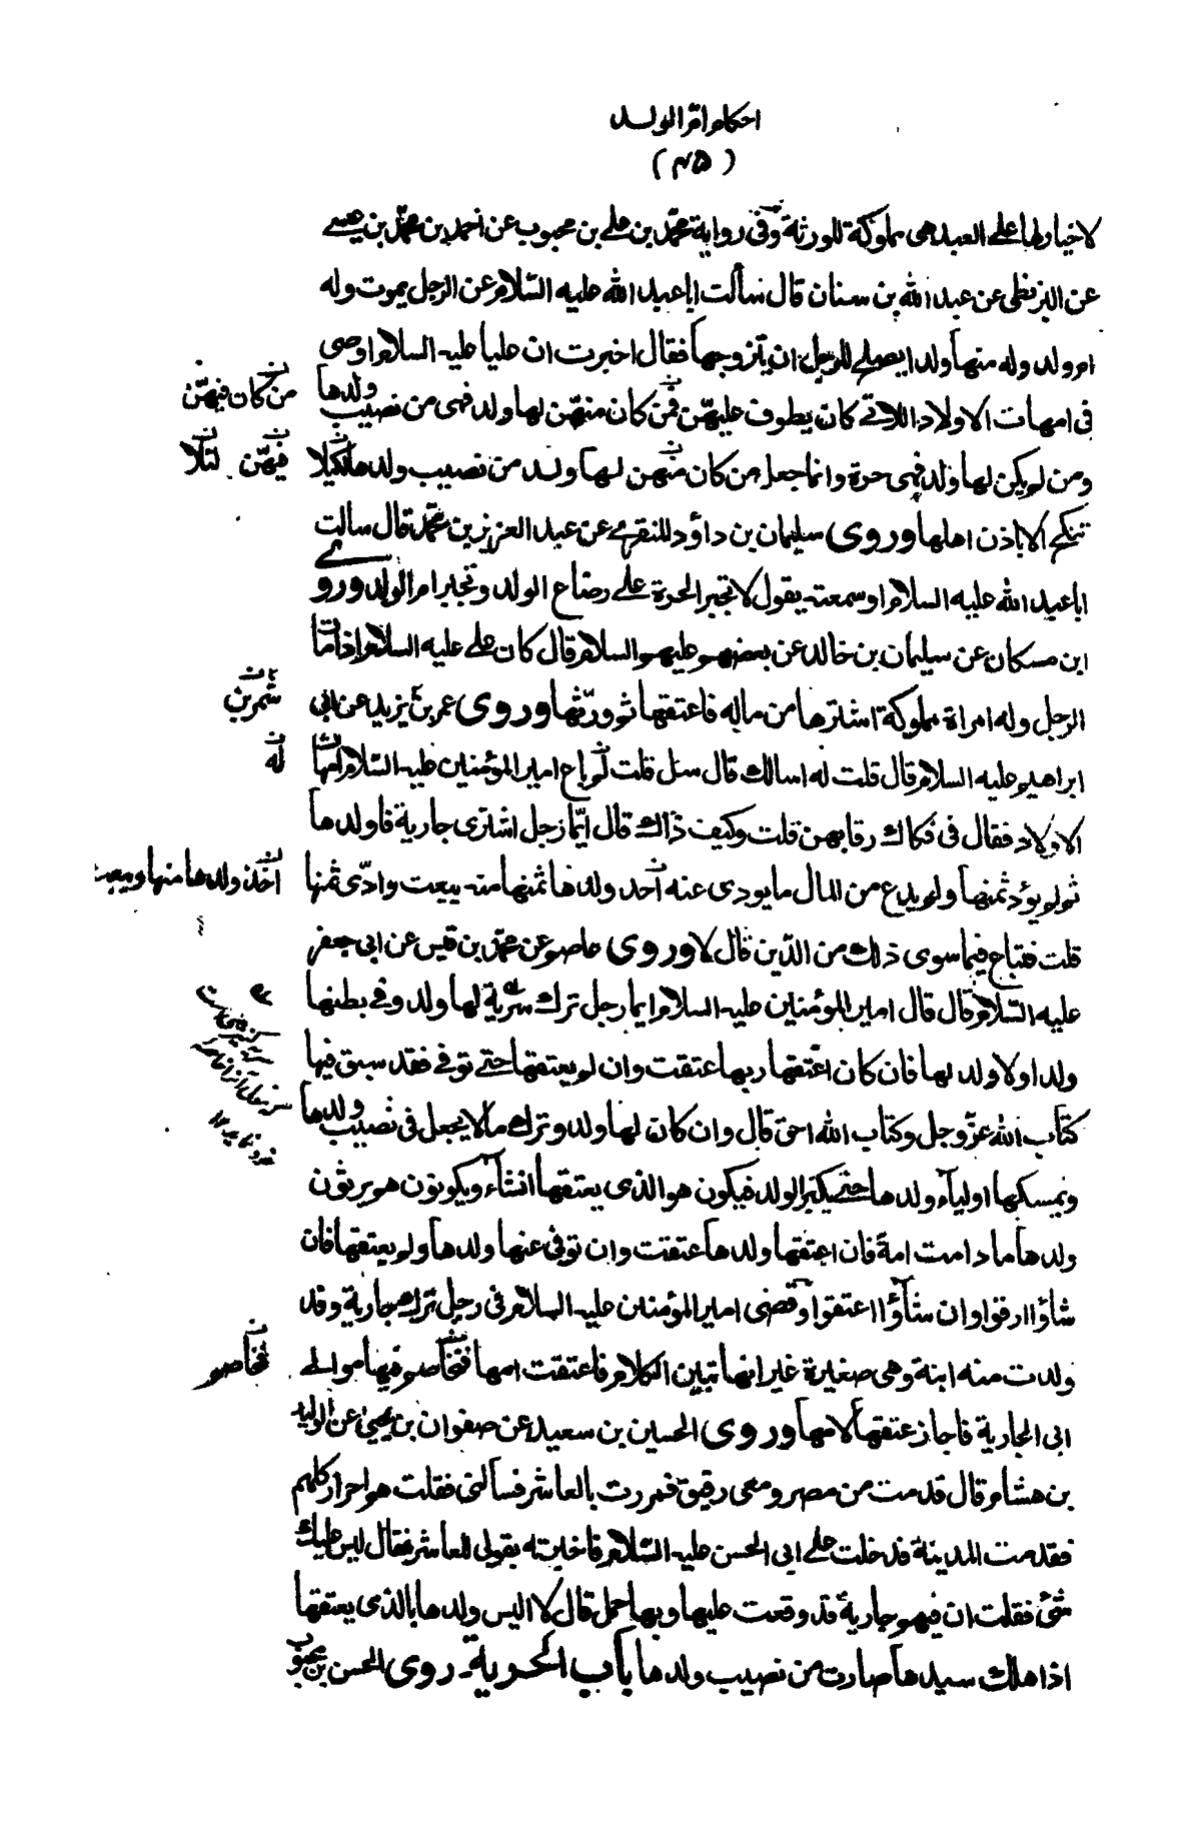 احكام ام الولد
(٤٥)
لا خيار لها على العبد هى مملوكة للورثة وفى رواية محمد بن على بن محبوب عن احمد بن محمد بن عيسى
عن البزنطى عن عبد الله بن سنان قال سألت ابا عبد الله عليه السلام عن الرجل يموت وله
ام ولد وله منها ولد ايصلح للرجل ان يتزوجها فقال اخبرت ان عليا عليه السلام اوصى
فى امهات الاولاد اللاتى كان يطوف عليهن فمن كان منهن لها ولد فهى من نصيب ولدها
من كان فيهن
ومن لم يكن لها ولد فهى حرة وانما جعل من كان منهن لها ولد من نصيب ولدها لكيلا
فيهن لئلا
تنكح الا باذن اهلها وروى سليمان بن داؤد المنقرى عن عبد العزيز بن محمد قال سالت
ابا عبد الله عليه السلام او سمعته يقول لا تجبر الحرة على رضاع الولد وتجبر ام الولد وروى
ابن مسكان عن سليمان بن خالد عن بعضهم عليهم السلام قال كان على عليه السلام اذا مات
الرجل وله امراة مملوكة اشترها من ماله فاعتقها ثم ورثها وروى عمر بن يزيد عن ابى
ابراهيم عليه السلام قال قلت له اسالك قال سئل قلت لم باع امير المؤمنين عليه السلام امهات
له
الاولاد فقال فى فكاك رقابهن قلت وكيف ذاك قال ايما رجل اشترى جارية فاولدها
ثم لم يؤد ثمنها ولم يدع من المال ما يودى عنه احد ولدها ثمنها منه بيعت وادى ثمنها
اخذ ولدها منها وبيعت
قلت فتباع فيما سوى ذلك من الدين قال لا وروى عاصم عن محمد بن قيس عن ابى جعفر
عليه السلام قال قال امير المؤمنين عليه السلام ايما رجل ترك سرية لها ولد وفى بطنها
ولد او لا ولد لها فان كان اعتقها ربها عتقت وان لم يعتقها حتى توفى فقد سبق فيها
كتاب الله عز وجل وكتاب الله احق قال وان كان لها ولد وترك مالا يجعل فى نصيب ولدها
ويمسكها اولياء ولدها حتى يكبر الولد فيكون هو الذى يعتقها انشاء ويكونون هم يرثون
ولدها ما دامت امة فان اعتقها ولدها عتقت وان توفى عنها ولدها ولم يعتقها فان
شاؤا ارقوا وان شاؤا اعتقوا وقضى امير المؤمنين عليه السلام فى رجل ترك جارية وقد
ولدت منه ابنة وهى صغيرة غير انها تبين الكلام فاعتقت امها فتخاصم فيها موالى
فخاصم
ابى الجارية فاجاز عتقها لامها وروى الحسين بن سعيد عن صفوان بن يحيى عن الوليد
بن هشام قال قدمت من مصر ومعى رقيق فمررت بالعاشر فسالنى فقلت هم احرار كلهم
فقدمت المدينة فدخلت على ابى الحسن عليه السلام فاخبرته بقولى للعاشر فقال ليس عليك
شئ فقلت ان فيهم جارية قد وقعت عليها وبها حمل قال لا اليس ولدها بالذى يعتقها
اذا هلك سيدها صارت من نصيب ولدها باب الحرية روى الحسن بن محبوب